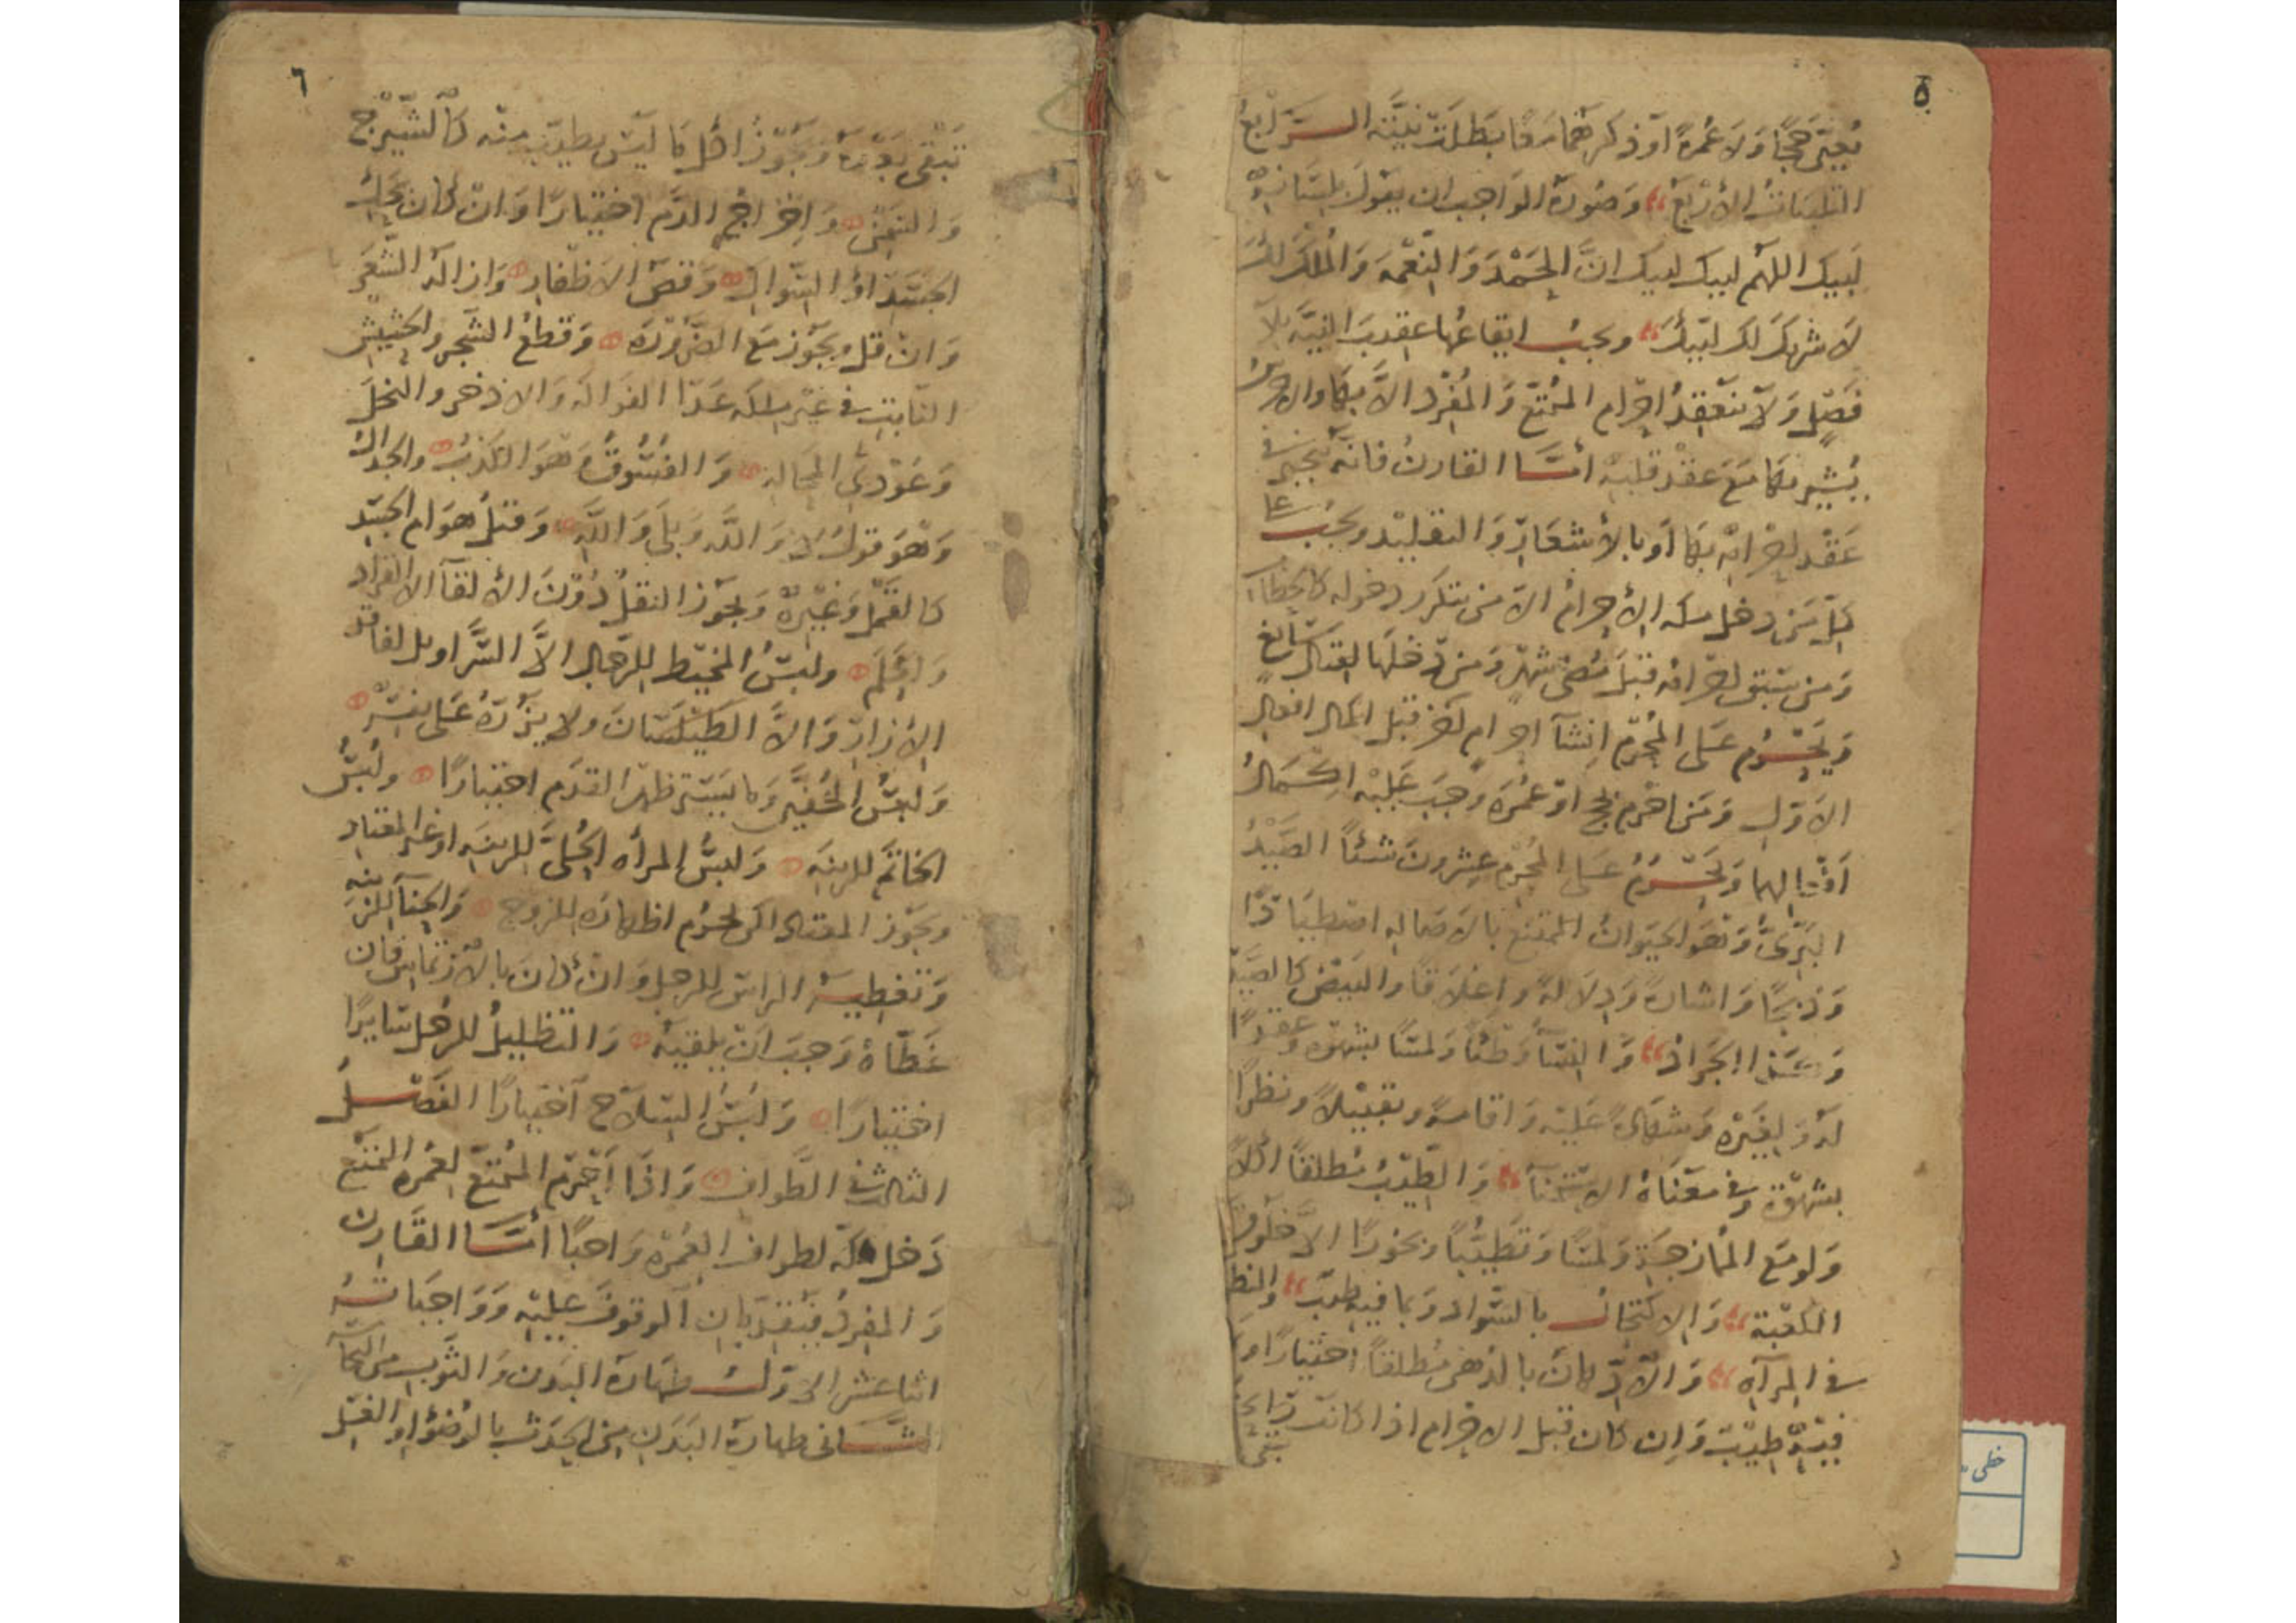 ٥
يعين حجا ولا عمرة او ذكرهما معا بطلت نيته الرابع
التلبيات الأربع وصورة الواجب ان يقول بلسانه
لبيك اللهم لبيك لبيك ان الحمد والنعمه والملك لك
لا شريك لك لبيك ويجب ايقاعها عقيب النية بلا
فصل ولا ينعقد احرام المتمتع والمفرد الا بها والاخرس
يشير بها مع عقد قلبه أما القارن فانه يتخير في
عقد احرامه بها او بالأشعار والتقليد ويجب على
كل من دخل مكه الإحرام الا من يتكرر دخوله كالحطاب
ومن سبق احرامه قبل مضى شهر ومن دخلها لقتال سائغ
ويحرم على المحرم انشآ احرام اخر قبل اكمال افعال
الاول ومن احرم بحج او عمرة وجب عليه اكمال
افعالهما ويحرم على المحرم عشرون شئا الصيد
البرى وهو الحيوان الممتنع بالاصاله اصطيادا
وذبحا واشارة ودلالة واغلاقا والبيض كالصيد
وكذا الجراد والنسآ وطئا ولمسا بشهوة وعقدا
له ولغيره وشهادة عليه واقامة وتقبيلا ونظرا
بشهوة وفي معناه الاستمنآ والطيب مطلقا اكلا
ولو مع الممازجة ولمسا وتطيبا وبخورا الا خلوق
الكعبة والاكتحال بالسواد وبما فيه طيب والنظر
في المرآه والادهان بالدهن مطلقا اختيارا
فيه طيب وان كان قبل الاحرام اذا كانت رائحته
تبقى
٦
تبقى بعده ويجوز اكل ما ليس بطيب منه كالشيرج
والسمن واخراج الدم اختيارا وان كان بحك
الجسد او السواك وقص الاظفار وازالة الشعر
وان قل ويجوز مع الضرورة وقطع الشجر والحشيش
النابت في غير ملكه عدا الفواكه والاذخر والنخل
وعودى المحالة والفسوق وهو الكذب والجدال
وهو قول لا والله وبلى والله وقتل هوام الجسد
كالقمل وغيره ويجوز النقل دون الألقآ الا القراد
والحلم ولبس المخيط للرجال الا السراويل لفاقد
الازار والا الطيلسان ولا يزره على نفسه
ولبس الخفين وما يستر ظهر القدم اختيارا ولبس
الخاتم للزينه ولبس المرأه الحلى للزينه او غير المعتاد
ويجوز المعتاد لكن يحرم اظهاره للزوج والحنآ للزينه
وتغطية الراس للرجل وان كان بالارتماس فان
غطاه وجب ان يلقيه والتظليل للرجل سايرا
اختيارا ولبس السلاح اختيارا الفصل
الثالث في الطواف واذا احرم المتمتع لعمره التمتع
دخل مكه لطواف العمرة واجبا أما القارن
والمفرد فيقدمان الوقوف عليه وواجباته
اثنا عشر الاول طهارة البدن والثوب من النجاسة
الثاني طهارة البدن من الحدث بالوضوء او الغسل
خطی